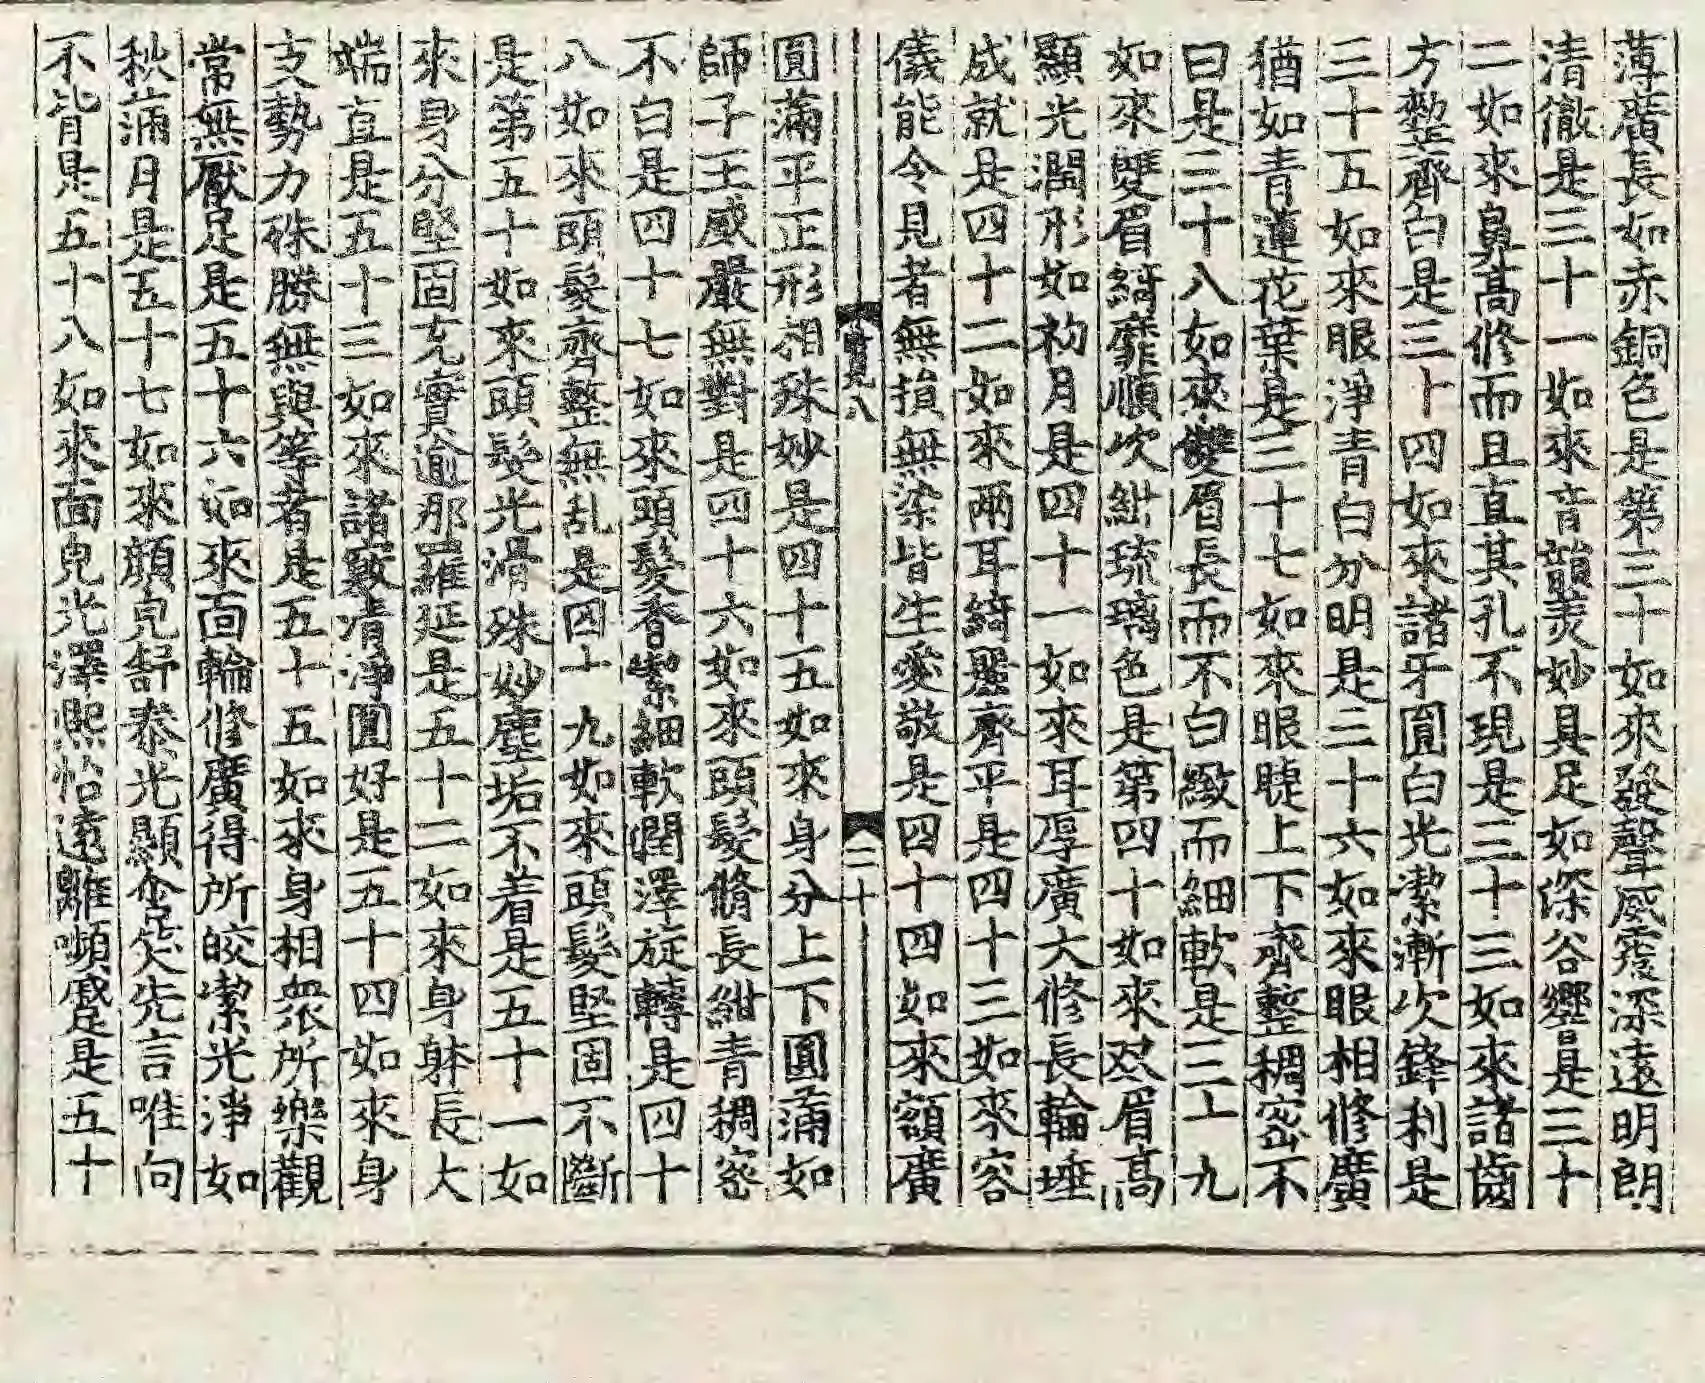 薄廣長如赤銅色是第三十如來發聲威震深遠明朗
清徹是三十一如來音韻美妙具足如深谷響是三十
二如來鼻高修而且直其孔不現是三十三如來諸齒
方整齊白是三十四如來諸牙圓白光潔漸次鋒利是
三十五如來眼淨青白分明是三十六如來眼相修廣
猶如青蓮花葉是三十七如來眼睫上下齊整稠密不
白是三十八如來雙眉長而不白緻而細軟是三十九
如來雙眉綺靡順次紺琉璃色是第四十如來双眉高
顯光潤形如初月是四十一如來耳厚廣大修長輪埵
成就是四十二如來兩耳綺麗齊平是四十三如來容
儀能令見者無損無染皆生愛敬是四十四如來額廣
八
二十
圓滿平正形相殊妙是四十五如來身分上下圓滿如
師子王威嚴無對是四十六如來頭髮脩長紺青稠密
不白是四十七如來頭髮香潔細軟潤澤旋轉是四十
八如來頭髮齊整無乱是四十九如來頭髮堅固不斷
是第五十如來頭髮光滑殊妙塵垢不着是五十一如
來身分堅固充實逾那羅延是五十二如來身躰長大
端直是五十三如來諸竅清淨圓好是五十四如來身
支勢力殊勝無與等者是五十五如來身相衆所樂觀
常無厭足是五十六如來面輪修廣得所皎潔光淨如
秋滿月是五十七如來顏皃舒泰光顯含笑先言唯向
不背是五十八如來面皃光澤熙怡遠離嚬蹙是五十